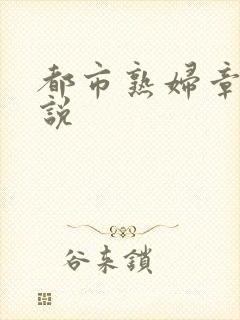 都市熟婦章
說
谷来鎖